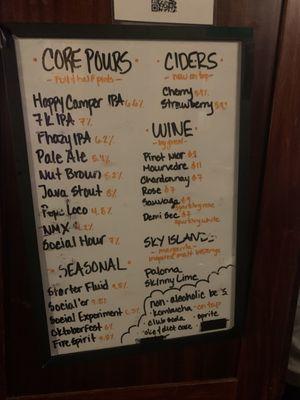 CORE POURS
- full & half pints -
Happy Camper IPA 6.6%
7K IPA 7%
Phazy IPA 6.2%
Pale Ale 5.4%
Nut Brown 5.2%
Java Stout 6%
Loco 4.8%
NMX
Social Hour 7%
SEASONAL
Starter Fluid 9.5%
Social'er 9.5%
Social Experiment
Oktoberfest 6%
Fire Spirit 9.5%
CIDERS
- now on tap -
Cherry
Strawberry
WINE
- by glass -
Pinot Noir
Mourvedre $11
Chardonnay $7
Rose $7
$9
sparkling rose
Demi Sec $7
sparkling white
SKY ISLAND
- margarita -
inspired malt beverage
Paloma
Skinny Lime
non-alcoholic
• kombucha - on tap
• club soda • sprite
diet coke